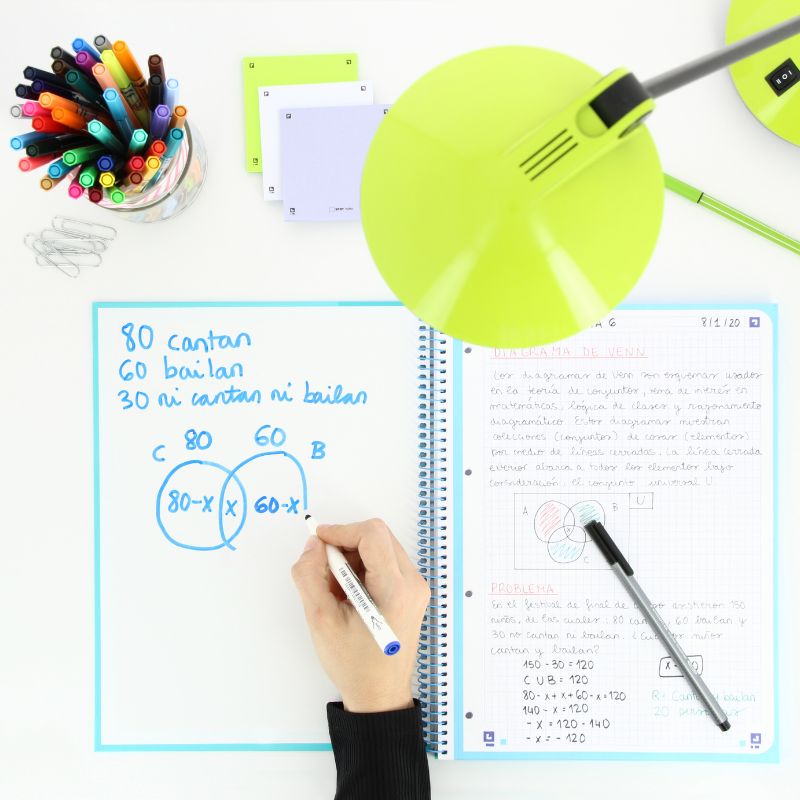 80 cantan
60 bailan
30 ni cantan ni bailan
80 60
C B
80-x x 60-x
6 8/1/20
DIAGRAMA DE VENN
Los diagramas de Venn son esquemas usados
en la teoría de conjuntos, tema de interés en
matemáticas, lógica de clases y razonamiento
diagramático. Estos diagramas muestran
colecciones (conjuntos) de cosas (elementos)
por medio de líneas cerradas. La línea cerrada
exterior abarca a todos los elementos bajo
consideración, el conjunto universal U.
U
A B
x
C
PROBLEMA
En el festival de final de asistieron 150
niños, de los cuales: 80 60 bailan y
30 no cantan ni bailan. niños
cantan y bailan?
150 - 30 = 120
C U B = 120
80 - x + x + 60 - x = 120
140 - x = 120
- x = 120 - 140
- x = - 120
R= y bailan
20